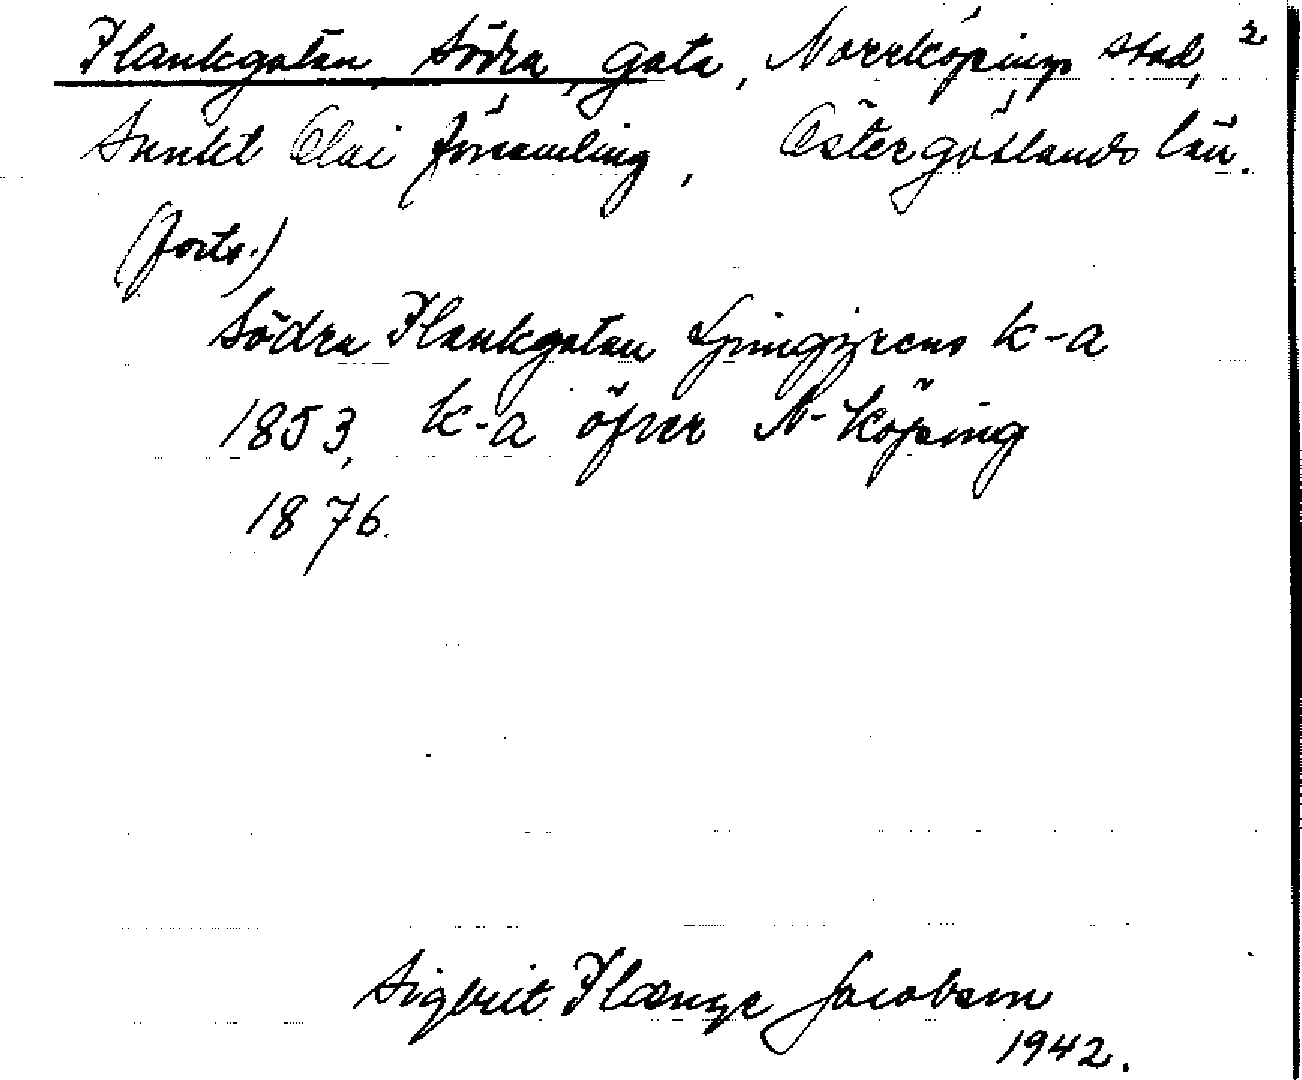 Plankgatan, Södra, gata, Norrköpings stad, 2
Sankt Olai församling, Östergötlands län.
(forts.)
Södra Plankgatan Ljunggrens k-a
1853, k-a öfver N-köping
1876.
Sigbrit Plænge Jacobson
1942.